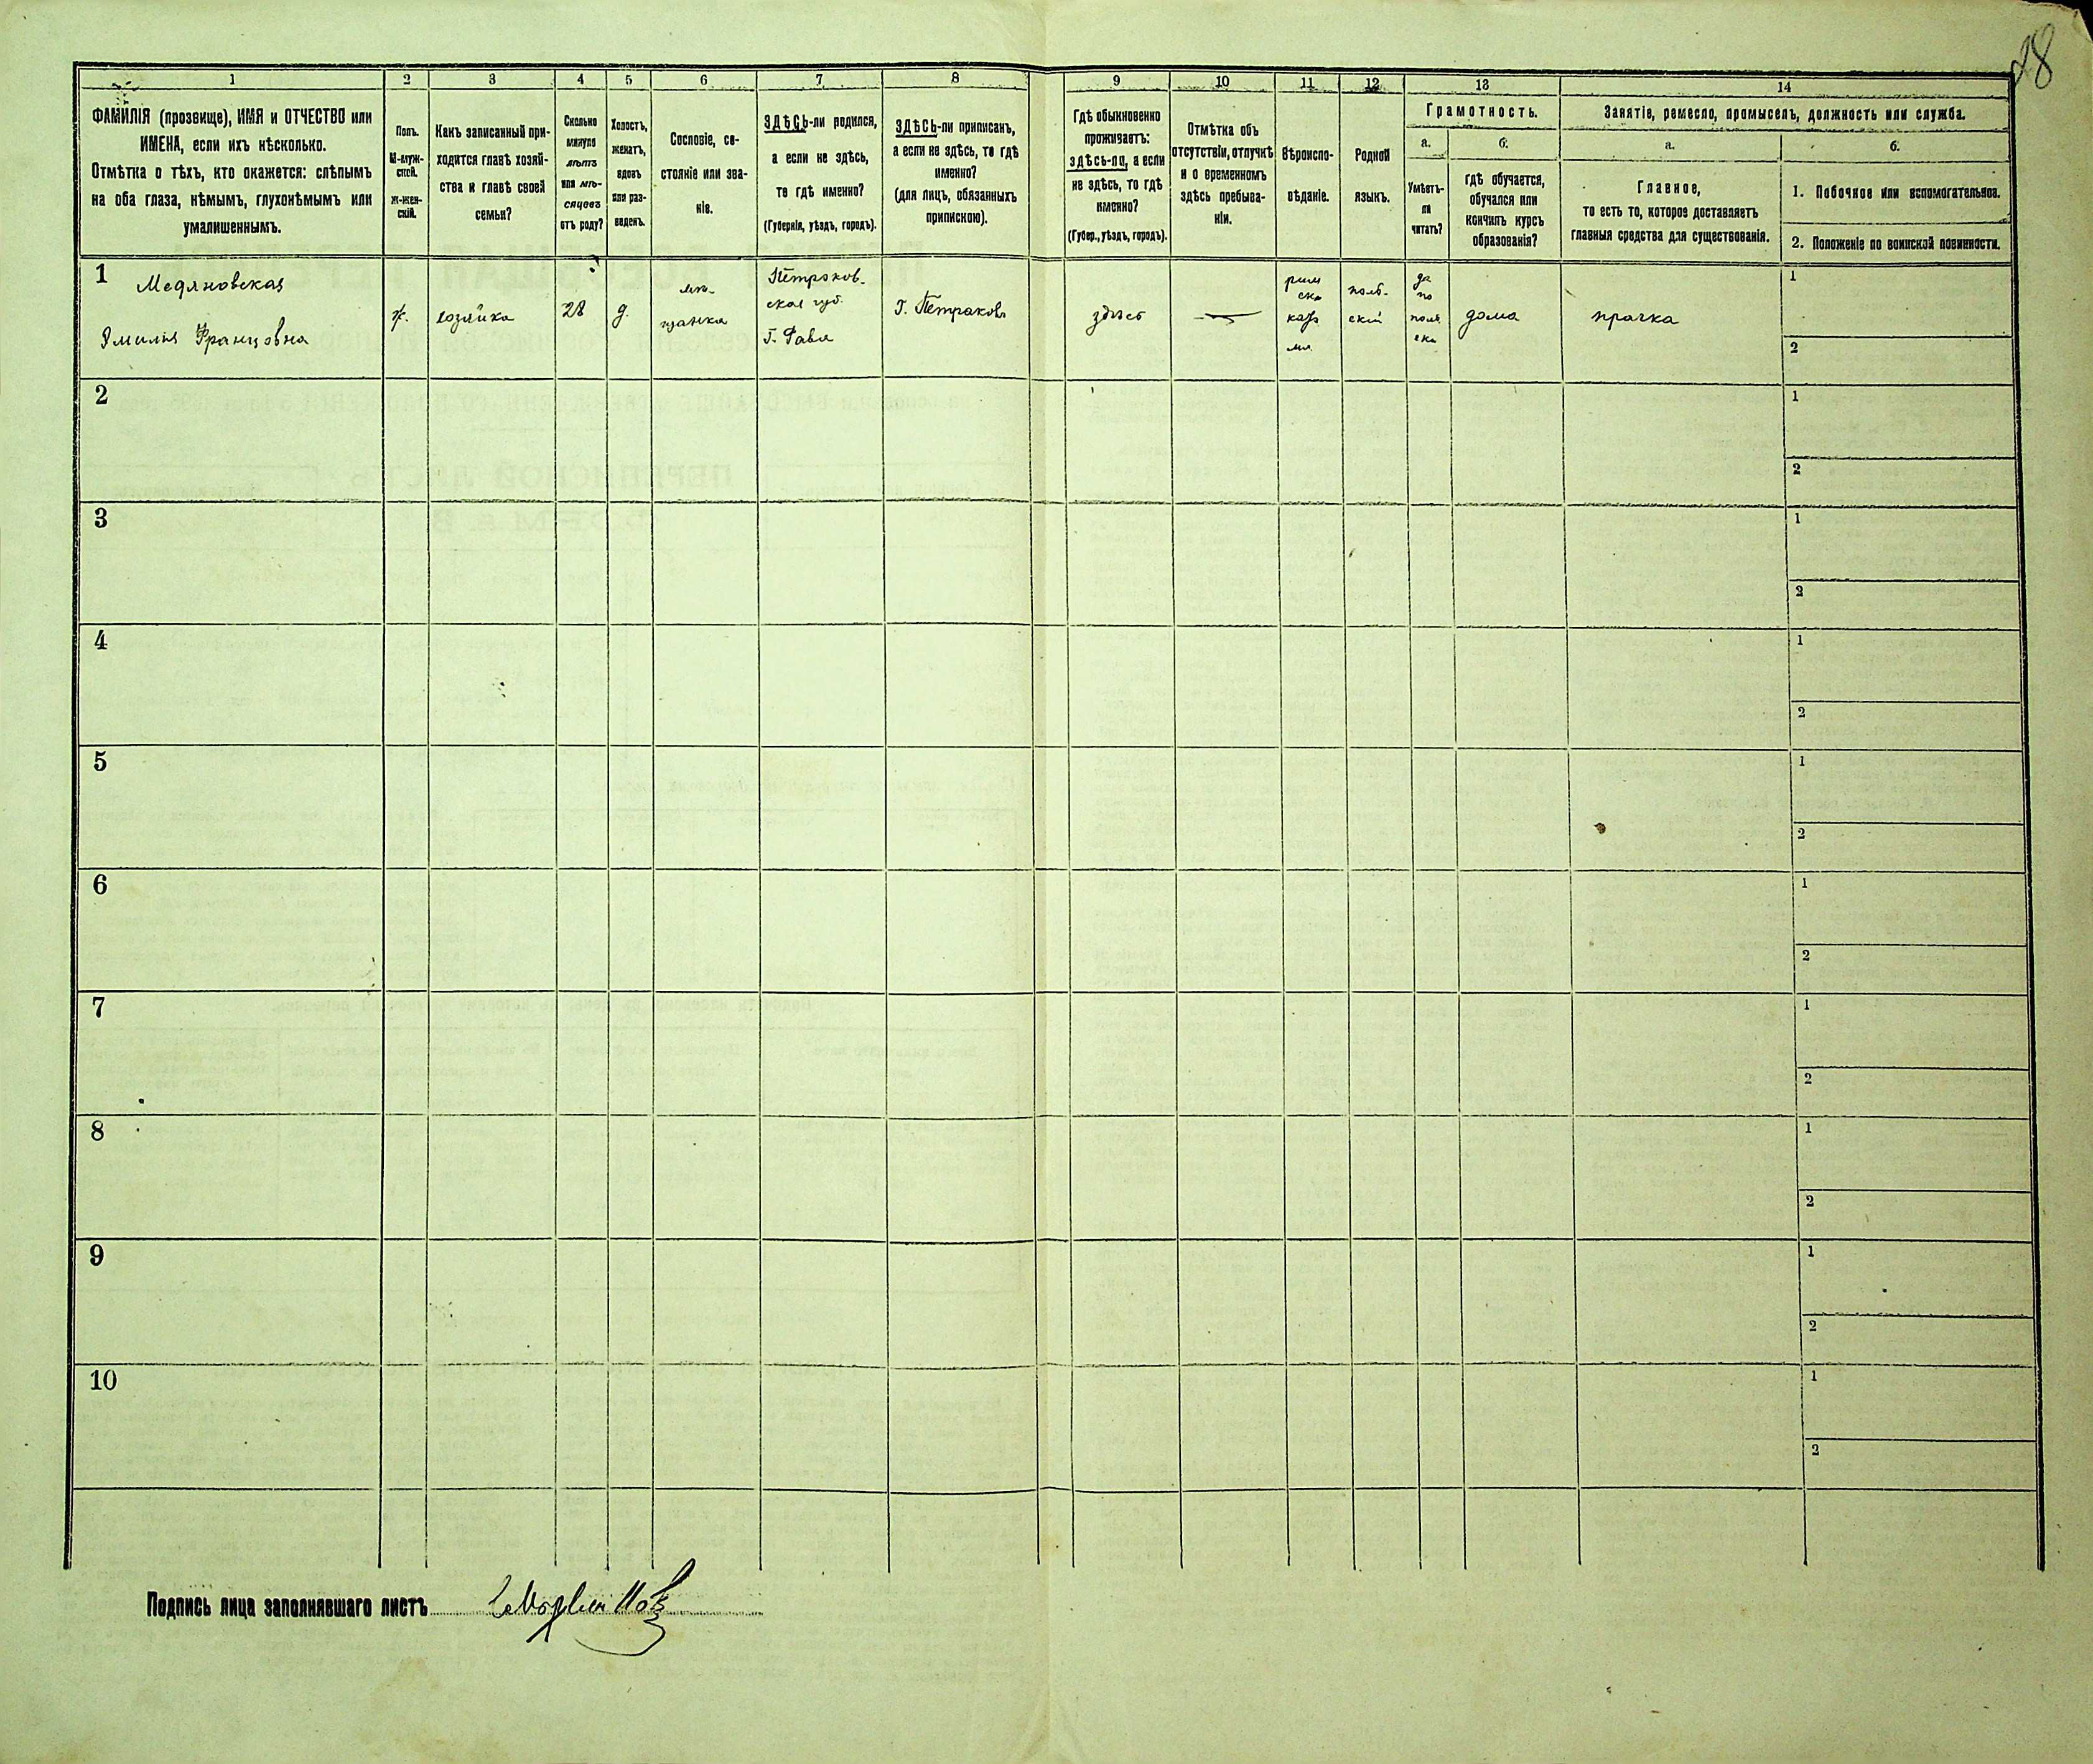 28
1 2 3 4 5 6 7 8 9 10 11 12 13 14
ФАМИЛІЯ (прозвище), ИМЯ и ОТЧЕСТВО или
ИМЕНА, если ихъ нѣсколько.
Отмѣтка о тѣхъ, кто окажется: слѣпымъ
на оба глаза, нѣмымъ, глухонѣмымъ или
умалишеннымъ.
Полъ.
М-муж-
ской.
Ж-жен-
скій.
Какъ записанный при-
ходится главѣ хозяй-
ства и главѣ своей
семьи?
Сколько
минуло
лѣтъ
или мѣ-
сяцевъ
отъ роду?
Холостъ,
женатъ,
вдовъ
или раз-
веденъ.
Сословіе, со-
стояніе или зва-
ніе.
ЗДѢСЬ-ли родился,
а если не здѣсь,
то гдѣ именно?
(Губернія, уѣздъ, городъ).
ЗДѢСЬ-ли приписанъ,
а если не здѣсь, то гдѣ
именно?
(для лицъ, обязанныхъ
припискою).
Гдѣ обыкновенно
проживаетъ:
здѣсь-ли, а если
не здѣсь, то гдѣ
именно?
(Губер., уѣздъ, городъ).
Отмѣтка объ
отсутствіи, отлучкѣ
и о временномъ
здѣсь пребыва-
ніи.
Вѣроиспо-
вѣданіе.
Родной
языкъ.
Грамотность.
а.
Умѣетъ-
ли
читать?
б.
гдѣ обучается,
обучался или
кончилъ курсъ
образованія?
Занятіе, ремесло, промыселъ, должность или служба.
а.
Главное,
то есть то, которое доставляетъ
главныя средства для существованія.
б.
1. Побочное или вспомогательное.
2. Положеніе по воинской повинности.
1
Медяновская
Эмилія Францовна
ж.
хозяйка
28
д.
мѣ-
щанка
Петроков-
ская губ.
Г. Рава
Г. Петраковъ
здѣсь
рим
ско
като
поль-
скій
да
по
поль
ски
дома
прачка
1
2
2
1
2
3
1
2
4
1
2
5
1
2
6
1
2
7
1
2
8
1
2
9
1
2
10
1
2
Подпись лица заполнявшаго листъ